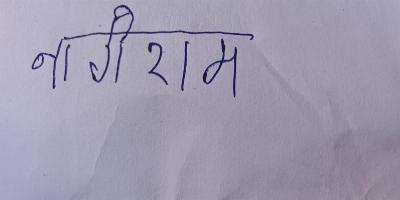 नागीराम